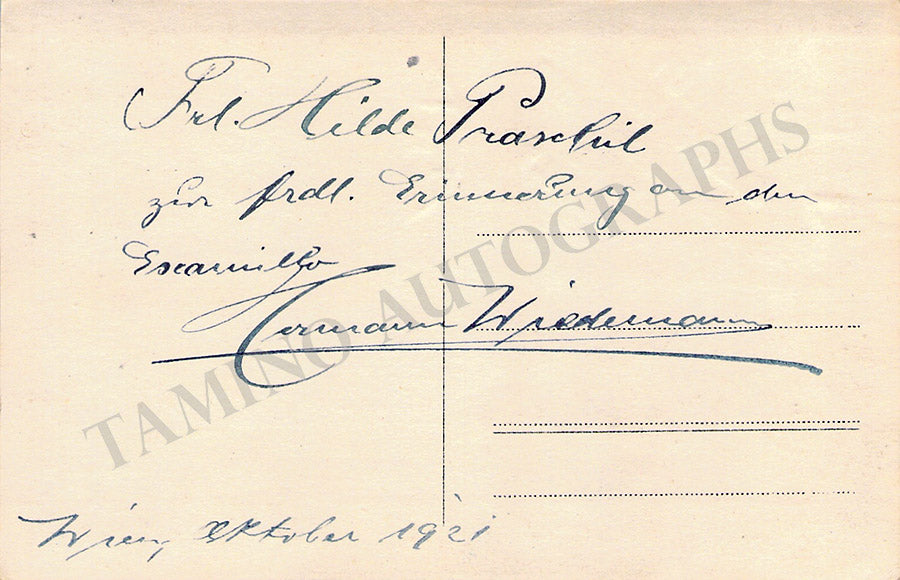 Frl. Hilde Praschil
zur frdl. Erinnerung an den
Escamillo
Hermann Wiedemann
Wien, Oktober 1921
TAMINO AUTOGRAPHS